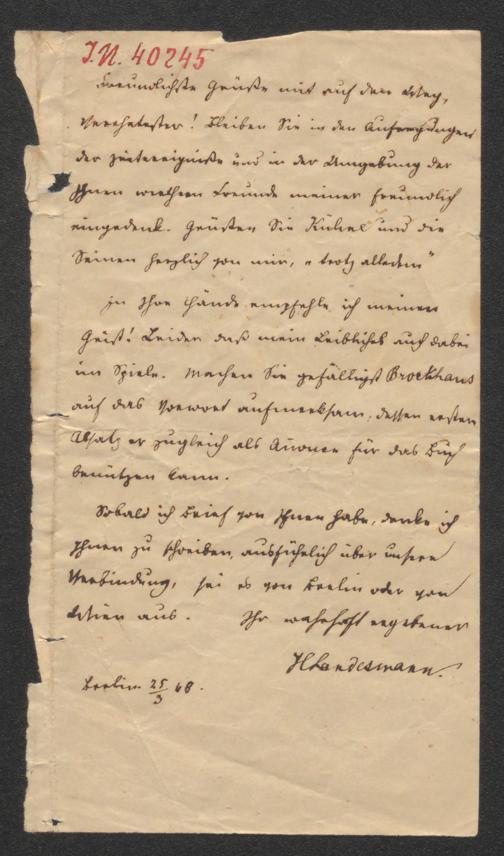 I.N. 40245
Freundlichste Grüße mit auf den Weg,
Verehrtester! Bleiben Sie in den Aufregungen
der Zeitereigniße und in der Umgebung der
Ihnen werthen Freunde meiner freundlich
eingedenk. Grüßen Sie Kühne und die
Seinen herzlich von mir, „trotz alledem"
In Ihre Hände empfehle ich meinen
Geist! Leider daß mein Leibliches auch dabei
im Spiele. Machen Sie gefälligst Brockhaus
auf das Vorwort aufmerksam, dessen ersten
Absatz er zugleich als Annonce für das Buch
benützen kann.
Sobald ich Brief von Ihnen habe, denke ich
Ihnen zu schreiben, ausführlich über unsere
Verbindung, sei es von Berlin oder von
Wien aus. Ihr wahrhaft ergebener
HLandesmann.
Berlin 25/3 48.